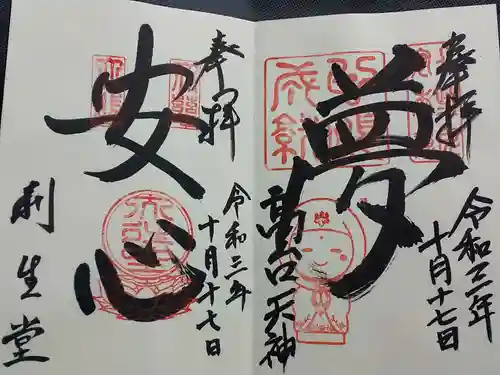 奉拝
夢
高台天神
令和三年
十月十七日
奉拝
安心
令和三年
十月十七日
利生堂